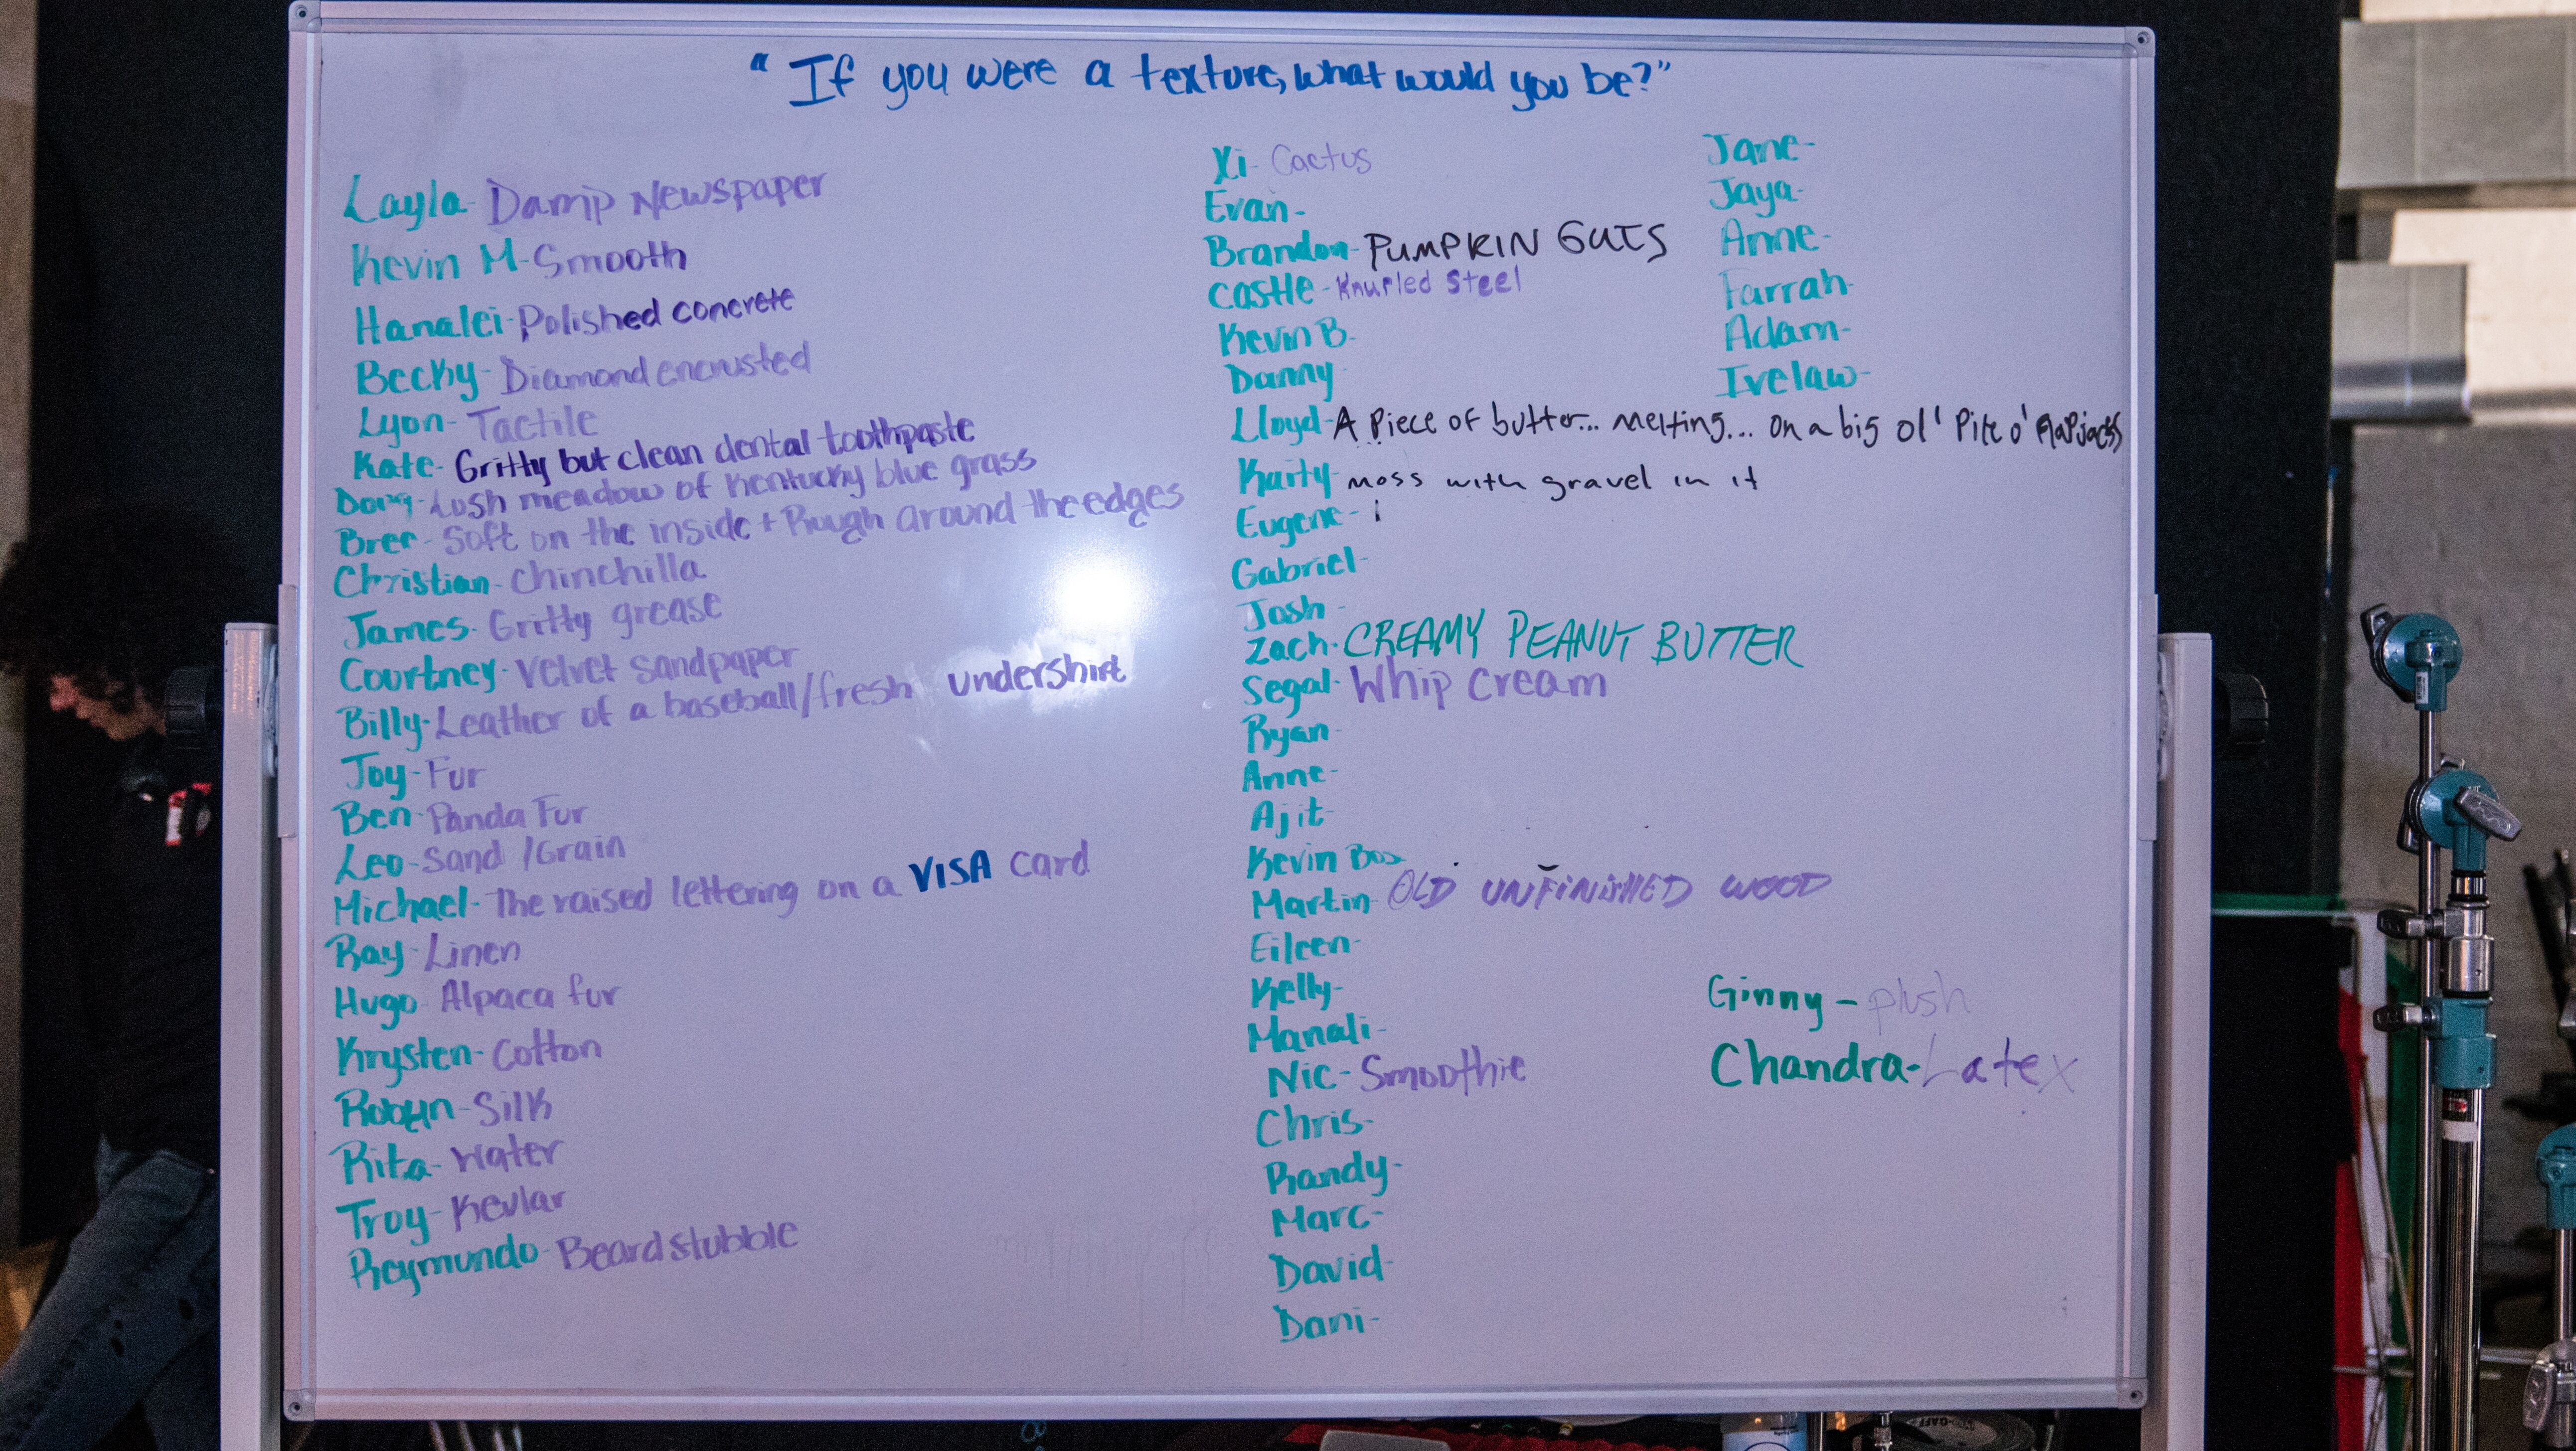 "If you were a texture, what would you be?"
Layla- Damp Newspaper
Kevin M- Smooth
Hanalei- Polished concrete
Becky- Diamond encrusted
Lyon- Tactile
Kate- Gritty but clean dental toothpaste
Doug- Lush meadow of Kentucky blue grass
Bree- Soft on the inside + Rough around the edges
Christian- Chinchilla
James- Gritty grease
Courtney- Velvet Sandpaper
Billy- Leather of a baseball/fresh undershirt
Joy- Fur
Ben- Panda Fur
Leo- Sand /Grain
Michael- The raised lettering on a VISA card
Ray- Linen
Hugo- Alpaca fur
Krysten- Cotton
Robyn- Silk
Rita- Water
Troy- Kevlar
Raymundo- Beard stubble
Xi- Cactus
Evan-
Brandon- PUMPKIN GUTS
Castle- Knurled Steel
Kevin B.
Danny
Lloyd- A Piece of butter... melting... on a big ol' Pile o' flapjacks
Karty- moss with gravel in it
Eugene-
Gabriel-
Josh-
Zach- CREAMY PEANUT BUTTER
Segal- Whip Cream
Ryan-
Anne-
Ajit-
Kevin Bos-
Martin- OLD UNFINISHED WOOD
Eileen-
Kelly-
Manali-
Nic- Smoothie
Chris-
Randy-
Marc-
David-
Dani-
Jane-
Jaya-
Anne-
Farrah-
Adam-
Ivelaw-
Ginny- plush
Chandra- Latex